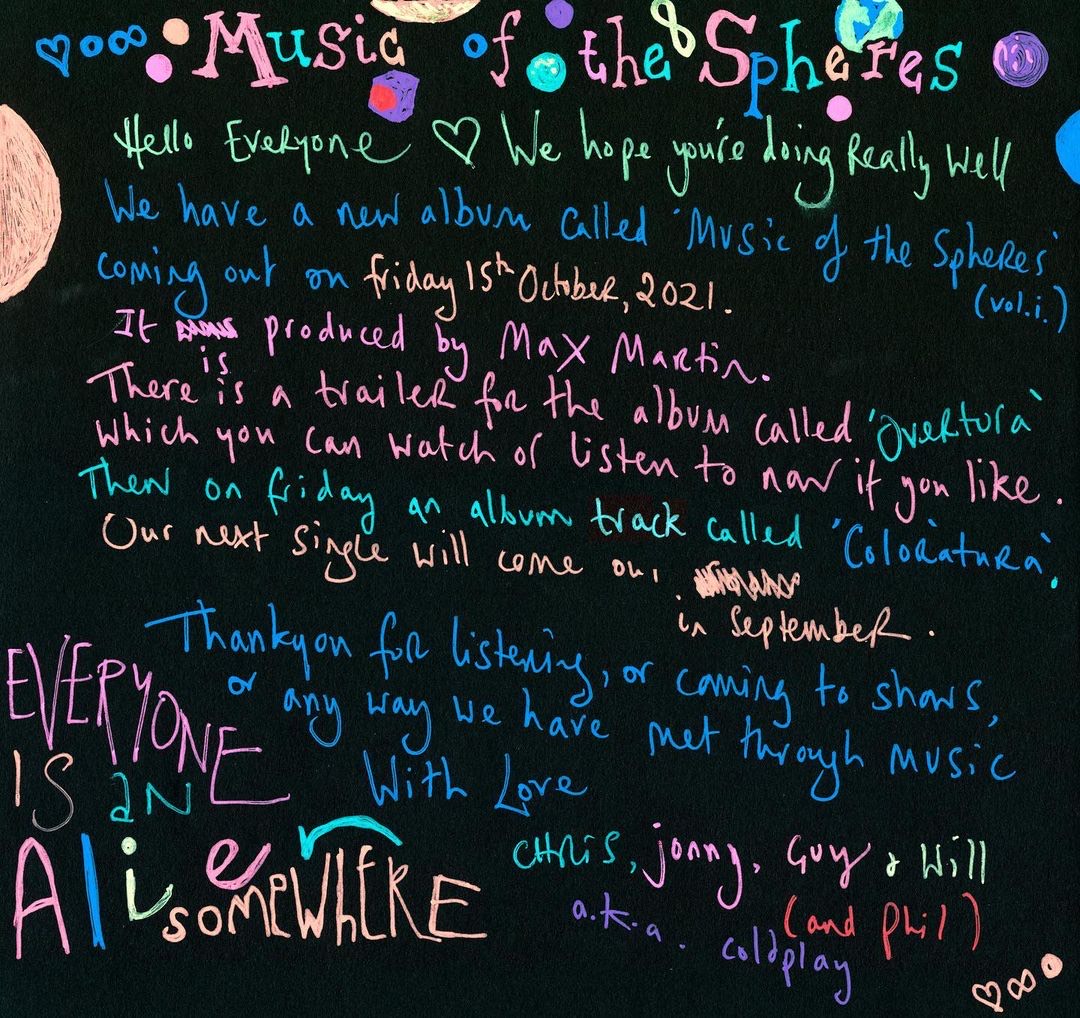 Music of the Spheres
Hello Everyone ♡ We hope you're doing Really Well
We have a new album called 'Music of the Spheres'
(vol.i.)
coming out on friday 15th October, 2021.
It is produced by Max Martin.
There is a trailer for the album called 'Overtura'
which you can watch or listen to now if you like.
Then on friday an album track called 'Coloratura'.
Our next single will come out
in September.
Thankyou for listening, or coming to shows,
or any way we have met through music
With Love
Chris, jonny, Guy & Will
(and Phil)
a.k.a. coldplay
EVERYONE
IS aN
Alien
SOMEWHERE